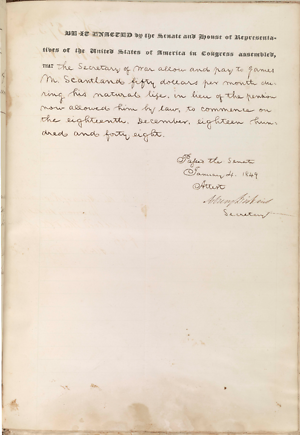 BE IT ENACTED by the Senate and House of Representa-
tives of the United States of America in Congress assembled,
THAT the Secretary of War allow and pay to James
M Scantland fifty dollars per month du-
ring his natural life, in lieu of the pension
now allowed him by law, to commence on
the eighteenth, December, eighteen hun-
dred and forty eight.
Passed the Senate
January 4. 1849
Attest
Asbury Dickins
Secretary